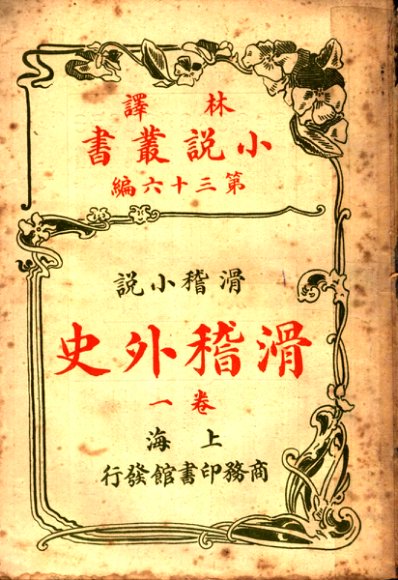 林譯
小說叢書
第三十六編
滑稽小說
滑稽外史
卷一
上海
商務印書館發行